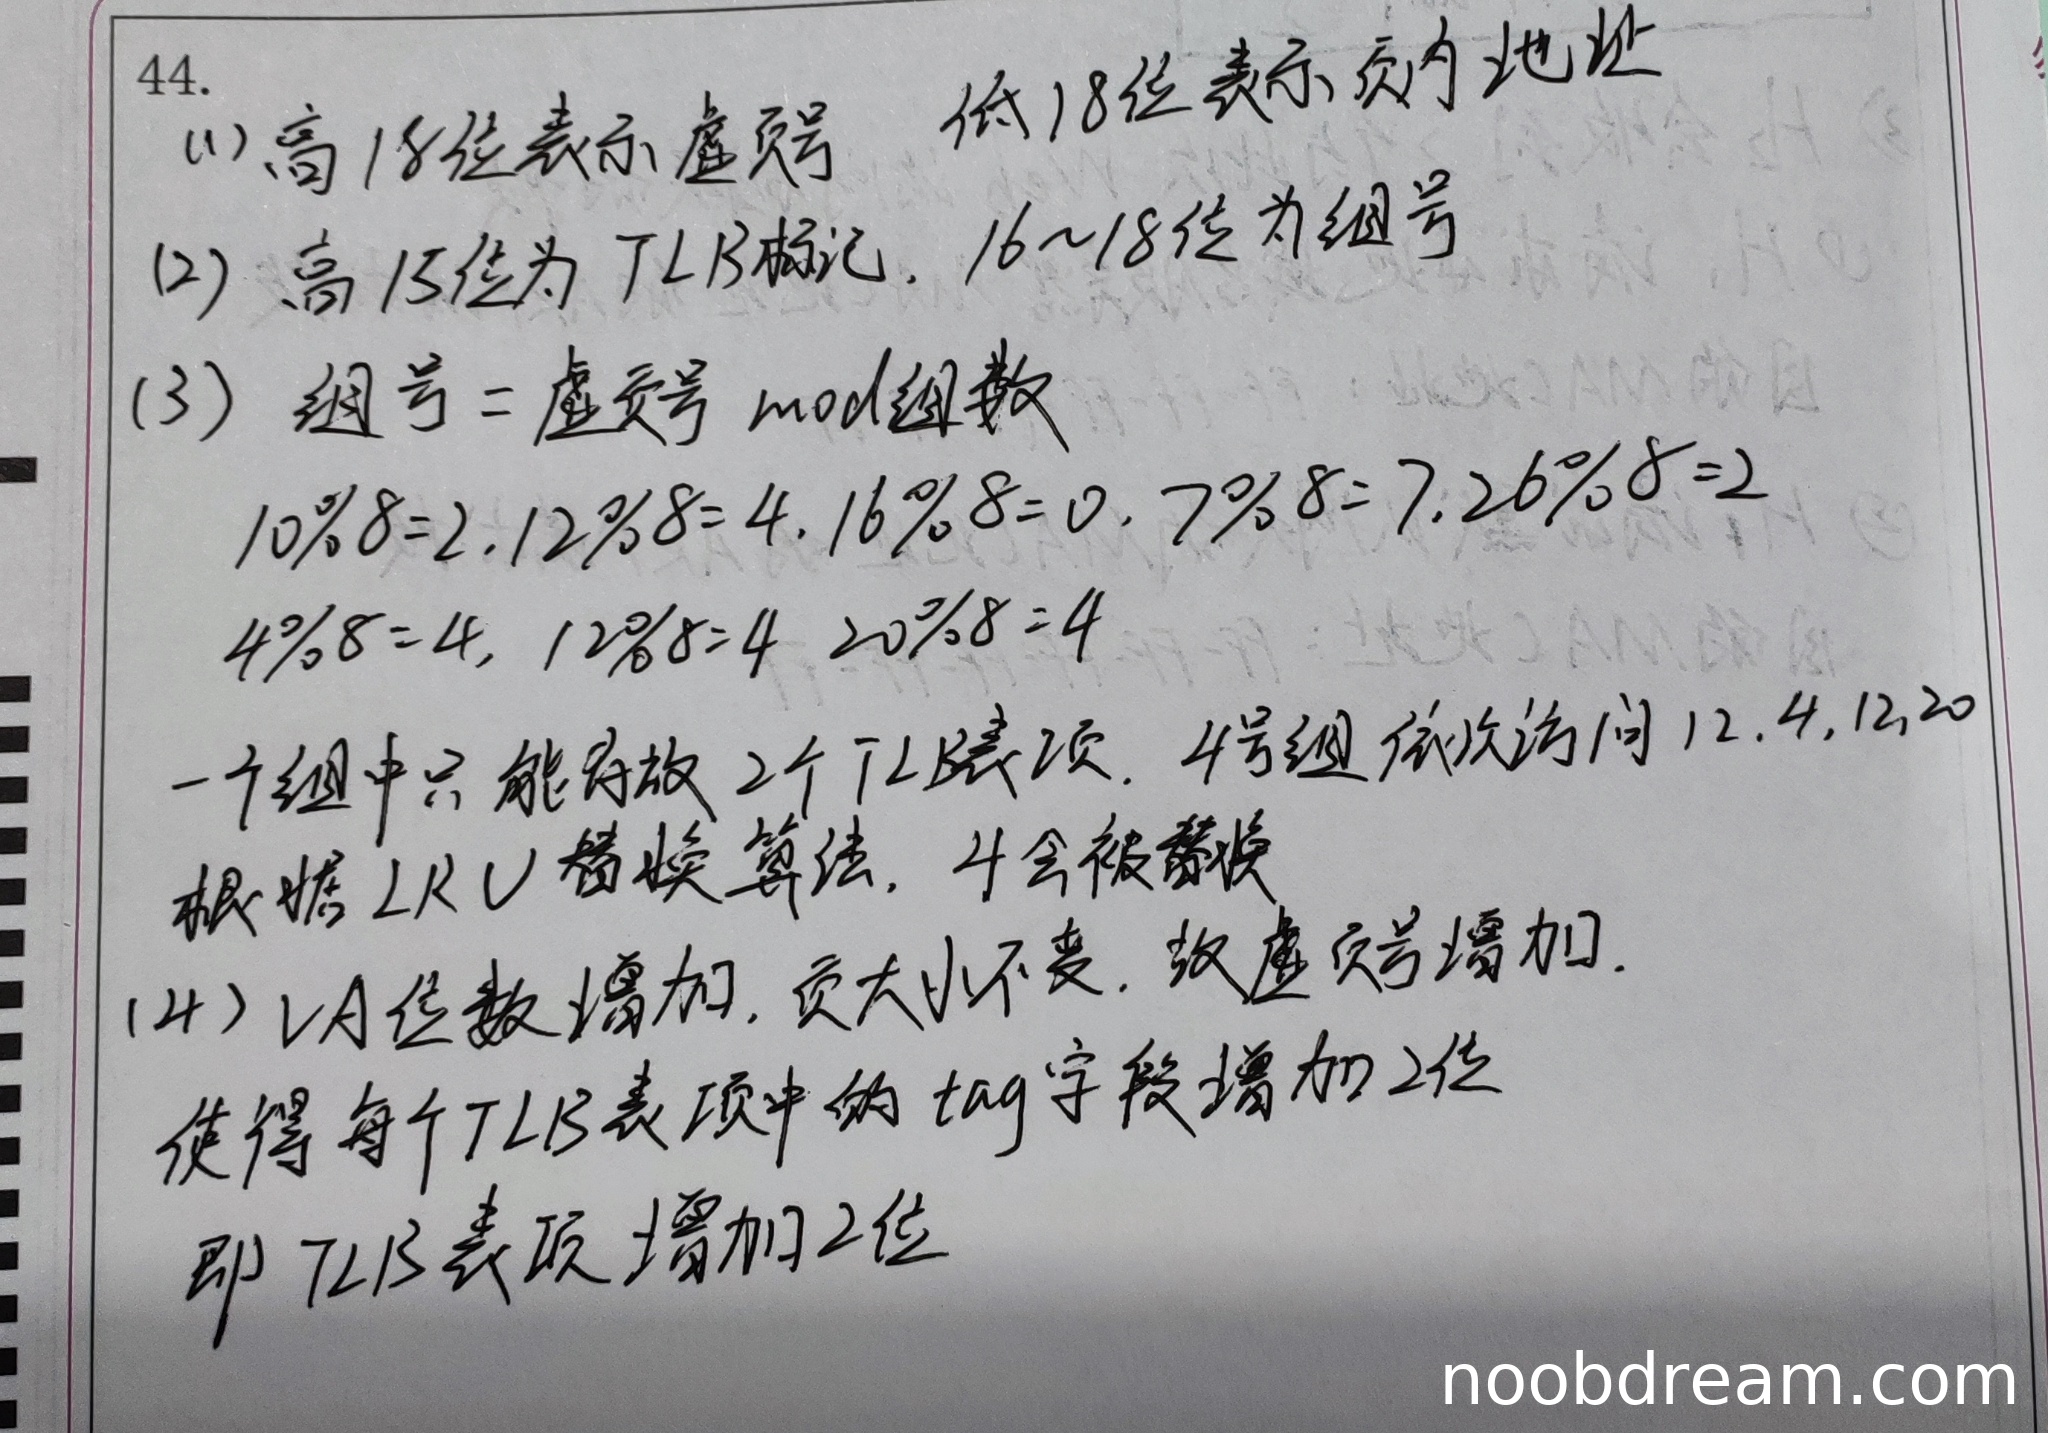 44.
(1) 高18位表示虚页号 低18位表示页内地址
(2) 高15位为TLB标记. 16~18位为组号
(3) 组号=虚页号 mod组数
10%8=2. 12%8=4. 16%8=0. 7%8=7. 26%8=2
4%8=4, 12%8=4 20%8=4
一个组中只能存放2个TLB表项. 4号组依次访问12.4.12,20
根据LRU替换算法. 4会被替换
(4) VA位数增加. 页大小不变. 故虚页号增加.
使得每个TLB表项中的tag字段增加2位
即TLB表项增加2位
noobdream.com